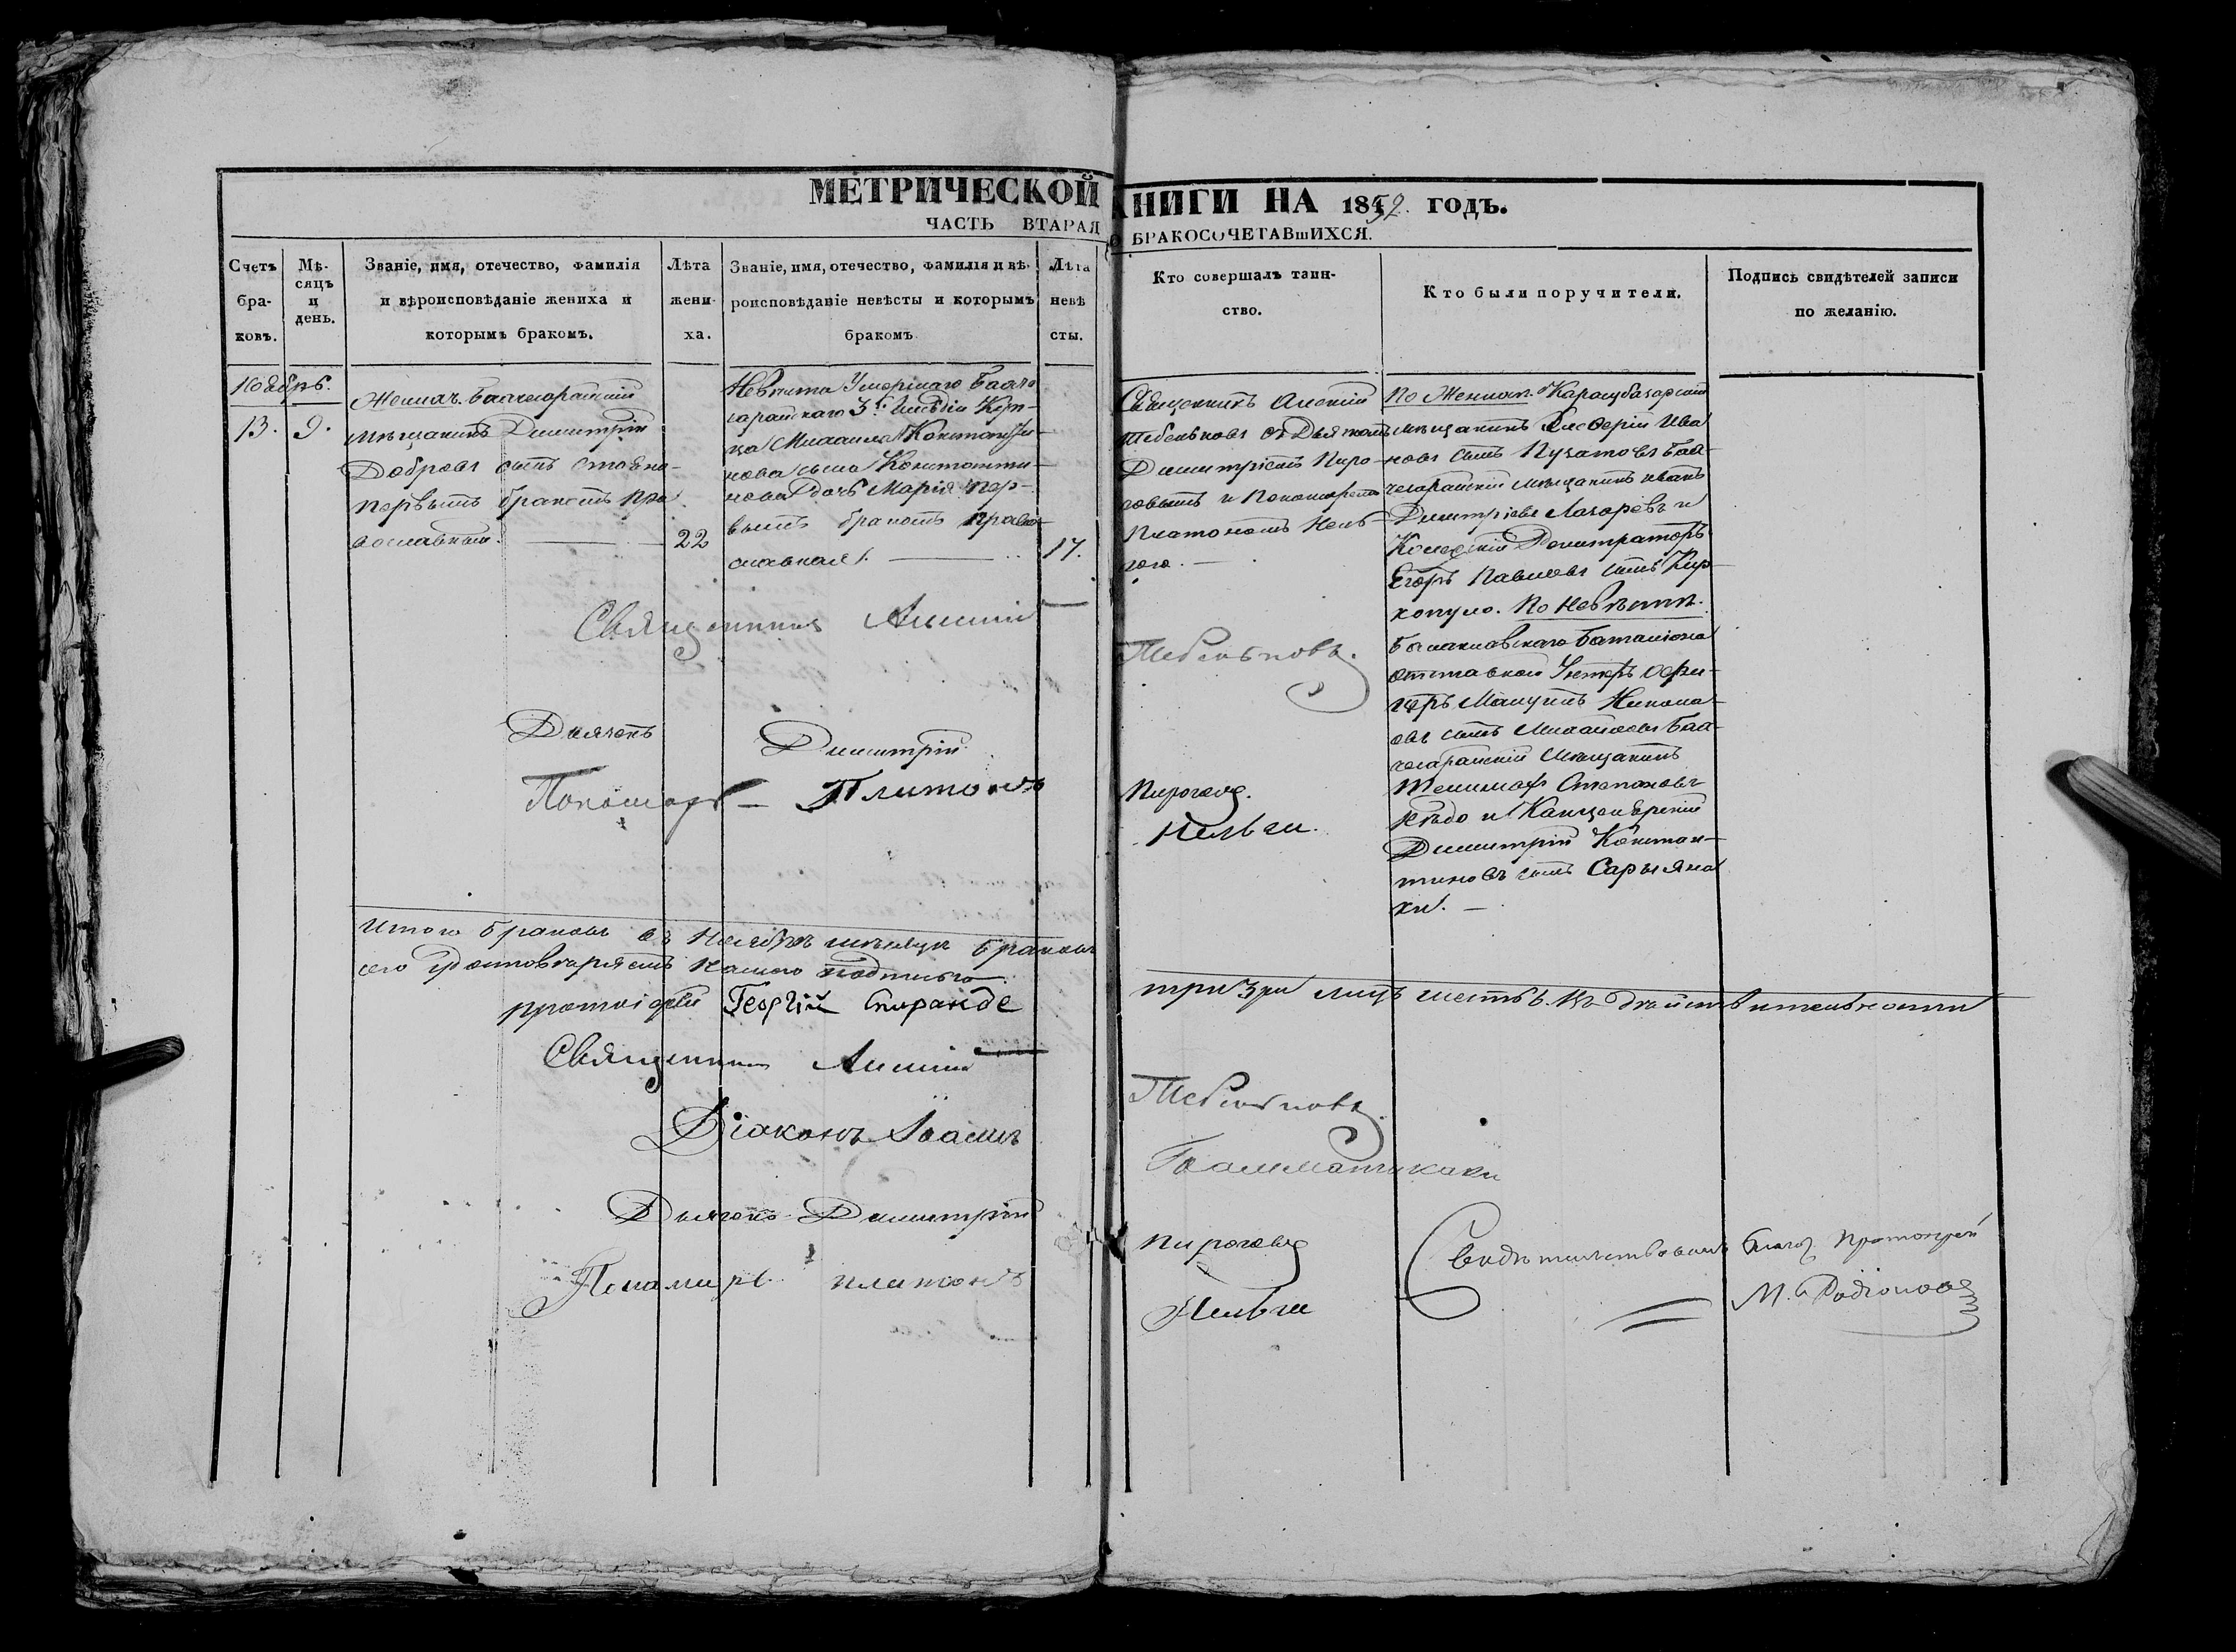 МЕТРИЧЕСКОЙ КНИГИ НА 1852 ГОДЪ.
ЧАСТЬ ВТАРАЯ О БРАКОСОЧЕТАВшИХСЯ.
Счетъ бра-ковъ.
Мѣ-сяцъ и день.
Званіе, имя, отечество, фамилія
и вѣроисповѣданіе жениха и
которымъ бракомъ.
Лѣта
жени-
ха.
Званіе, имя, отечество, фамилія и вѣ-
роисповѣданіе невѣсты и которымъ
бракомъ
Лѣта
невѣ
сты.
Кто совершалъ таин-
ство.
Кто были поручители.
Подпись свидѣтелей записи
по желанію.
Ноябрь.
13. 9.
Женихъ. Бахчесарайскій
мѣщанинъ Димитрій
Добровъ сынъ
первымъ бракомъ Пра
вославный.
22
Невѣста Умершаго Бахче
сарайскаго 3й Гильдіи Куп-
ца Михаила Константи
нова сына Константи-
нова Дочь Марія пер-
вымъ бракомъ право
славная.
17.
Священникъ Алексій
Тебеньковъ съ Дьячкомъ
Димитріемъ Пиро-
говымъ и Пономаремъ
Платономъ Нель-
гою.
По Женихѣ. Карасубазарскій
мѣщанинъ Елеѳерій Ива
новъ сынъ Пузатовъ Бах-
чесарайскій мѣщанинъ Иванъ
Димитріевъ Лазаревъ и
Колежскій Регистраторъ
Егоръ Павловъ сынъ Кир
копуло. По Невѣстѣ.
Балаклавскаго Баталіона
отставной Унтеръ Офи-
церъ Никола-
евъ сынъ Михайловъ Бах-
чесарайскій Мѣщанинъ
Степановъ
и Канцелярскій
Димитрій Констан-
тиновъ сынъ Сарыяна
ки.
Священникъ Алексій Тебеньковъ.
Дьячекъ Димитрій Пироговъ.
Пономарь Платонъ Нельги.
Итого браковъ въ Ноябрѣ мѣсяцѣ браковъ три 3 лицъ шесть 6. Въ дѣйствительности
сего удостовѣряемъ нашею подписью
протоіерей Георгій Спиранде
Священникъ Алексій Тебеньковъ.
Діаконъ Іоаннъ Грамматикаки
Дьячекъ Димитрій Пироговъ
Понамарь платонъ Нельги
Свидѣтельствовалъ Благоч. Протоіерей
М. Родіоновъ